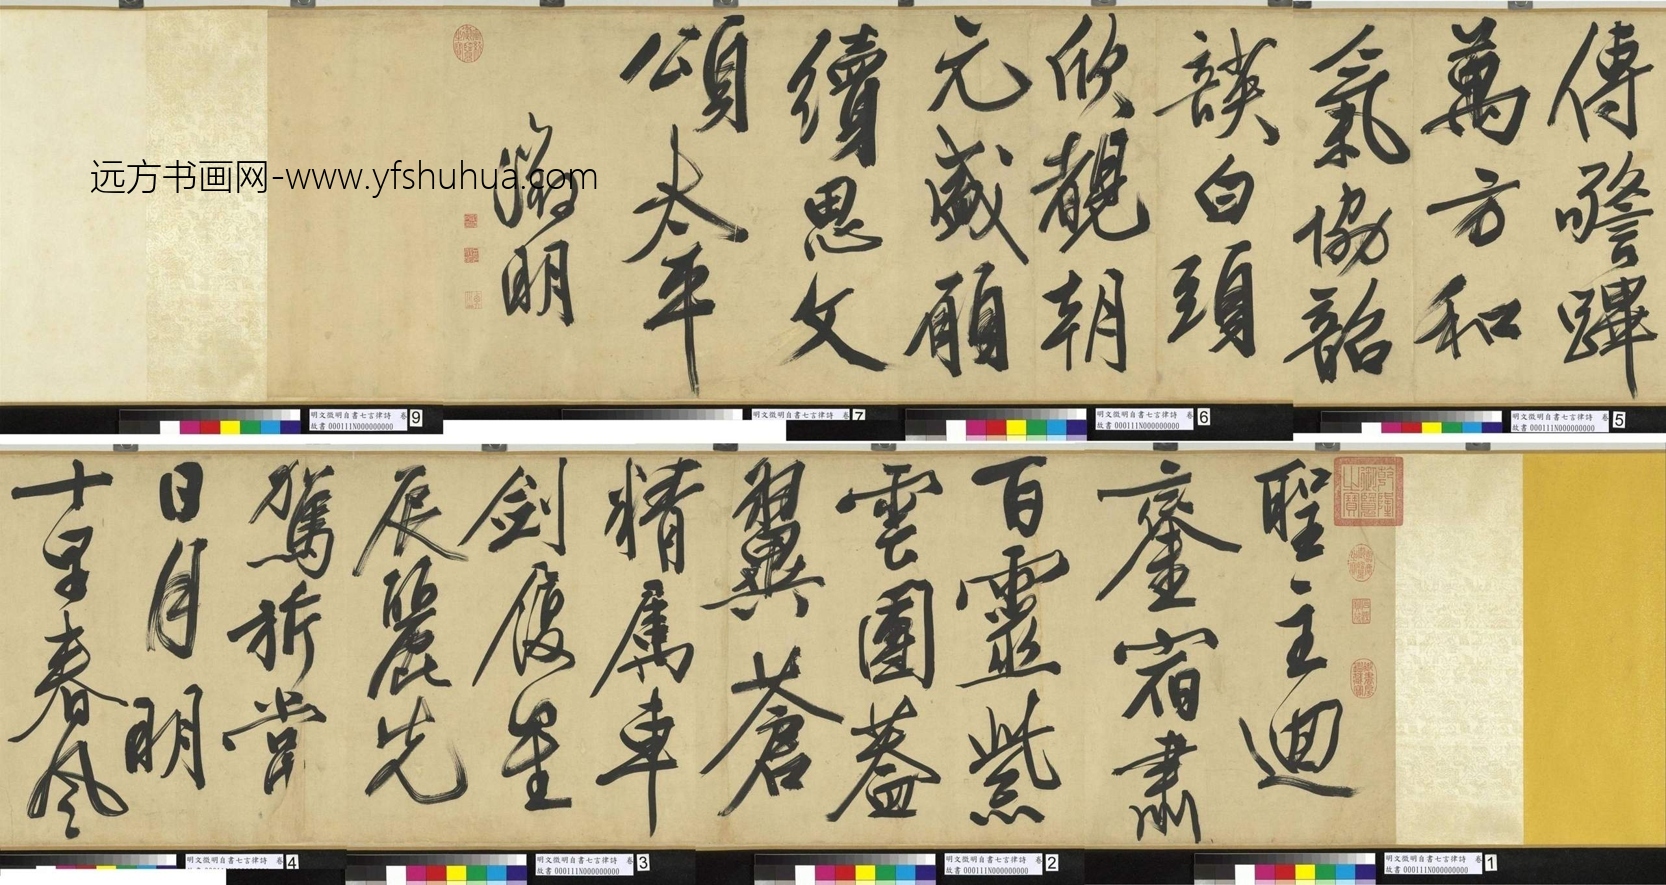 聖主迴
鑾宿肅
百靈紫
雲團蓋
翼蒼
精属車
劍履星
辰麗先
駕旂常
日月明
十里春風
傳警蹕
萬方和
氣協韶
韺白頭
欣覩朝
元盛願
續思文
頌太平
徵明
乾隆御覽之寶
远方书画网-www.yfshuhua.com
明文徵明自書七言律詩 卷
故書 000111N000000000
1
明文徵明自書七言律詩 卷
故書 000111N000000000
2
明文徵明自書七言律詩 卷
故書 000111N000000000
3
明文徵明自書七言律詩 卷
4
明文徵明自書七言律詩 卷
故書 000111N000000000
5
明文徵明自書七言律詩 卷
故書 000111N000000000
6
明文徵明自書七言律詩 卷
7
明文徵明自書七言律詩 卷
故書 000111N000000000
9